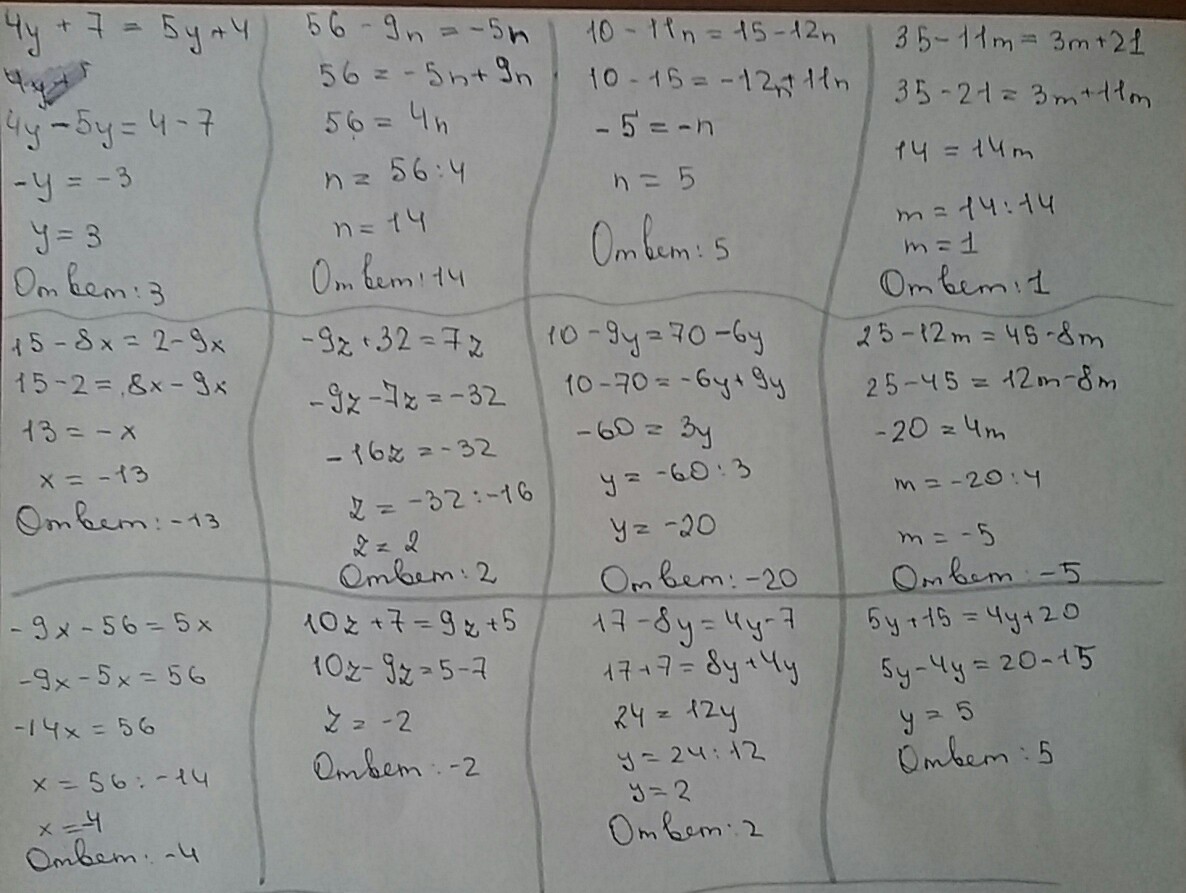 4y + 7 = 5y + 4
4y - 5y = 4 - 7
-y = -3
y = 3
Ответ: 3
56 - 9n = -5n
56 = -5n + 9n
56 = 4n
n = 56:4
n = 14
Ответ: 14
10 - 11n = 15 - 12n
10 - 15 = -12n + 11n
-5 = -n
n = 5
Ответ: 5
35 - 11m = 3m + 21
35 - 21 = 3m + 11m
14 = 14m
m = 14:14
m = 1
Ответ: 1
15 - 8x = 2 - 9x
15 - 2 = 8x - 9x
13 = -x
x = -13
Ответ: -13
-9z + 32 = 7z
-9z - 7z = -32
-16z = -32
z = -32:-16
z = 2
Ответ: 2
10 - 9y = 70 - 6y
10 - 70 = -6y + 9y
-60 = 3y
y = -60:3
y = -20
Ответ: -20
25 - 12m = 45 - 8m
25 - 45 = 12m - 8m
-20 = 4m
m = -20:4
m = -5
Ответ: -5
-9x - 56 = 5x
-9x - 5x = 56
-14x = 56
x = 56:-14
x = -4
Ответ: -4
10z + 7 = 9z + 5
10z - 9z = 5 - 7
z = -2
Ответ: -2
17 - 8y = 4y - 7
17 + 7 = 8y + 4y
24 = 12y
y = 24:12
y = 2
Ответ: 2
5y + 15 = 4y + 20
5y - 4y = 20 - 15
y = 5
Ответ: 5